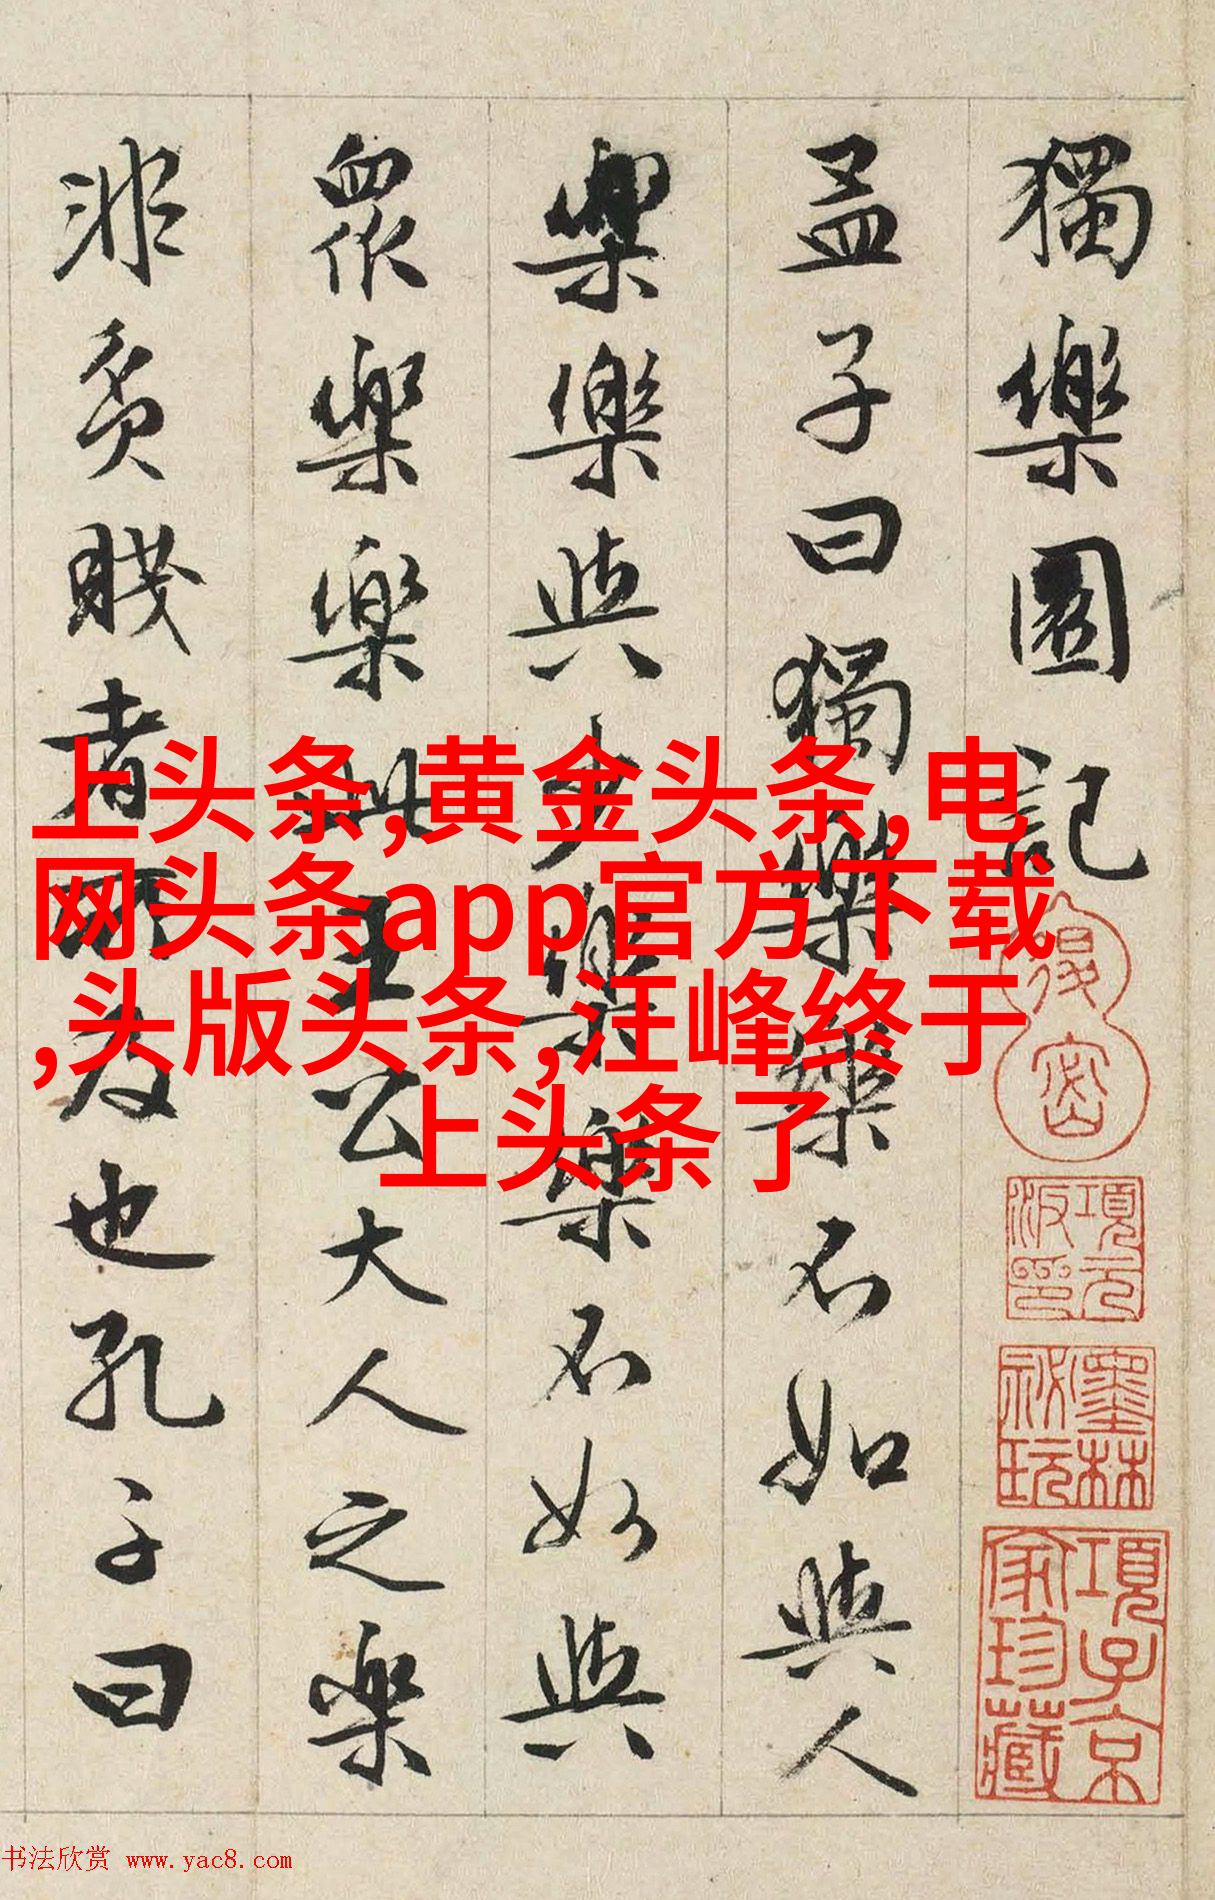 獨樂園記
孟子曰獨樂樂不如與人
樂樂與少樂樂不如與
衆樂樂此王公大人之樂
非貧賤者所及也孔子曰
上头条,黄金头条,电
网头条app官方下载
,头版头条,汪峰终于
上头条了
項元汴印
墨林祕玩
項子京家珍藏
书法欣赏 www.yac8.com